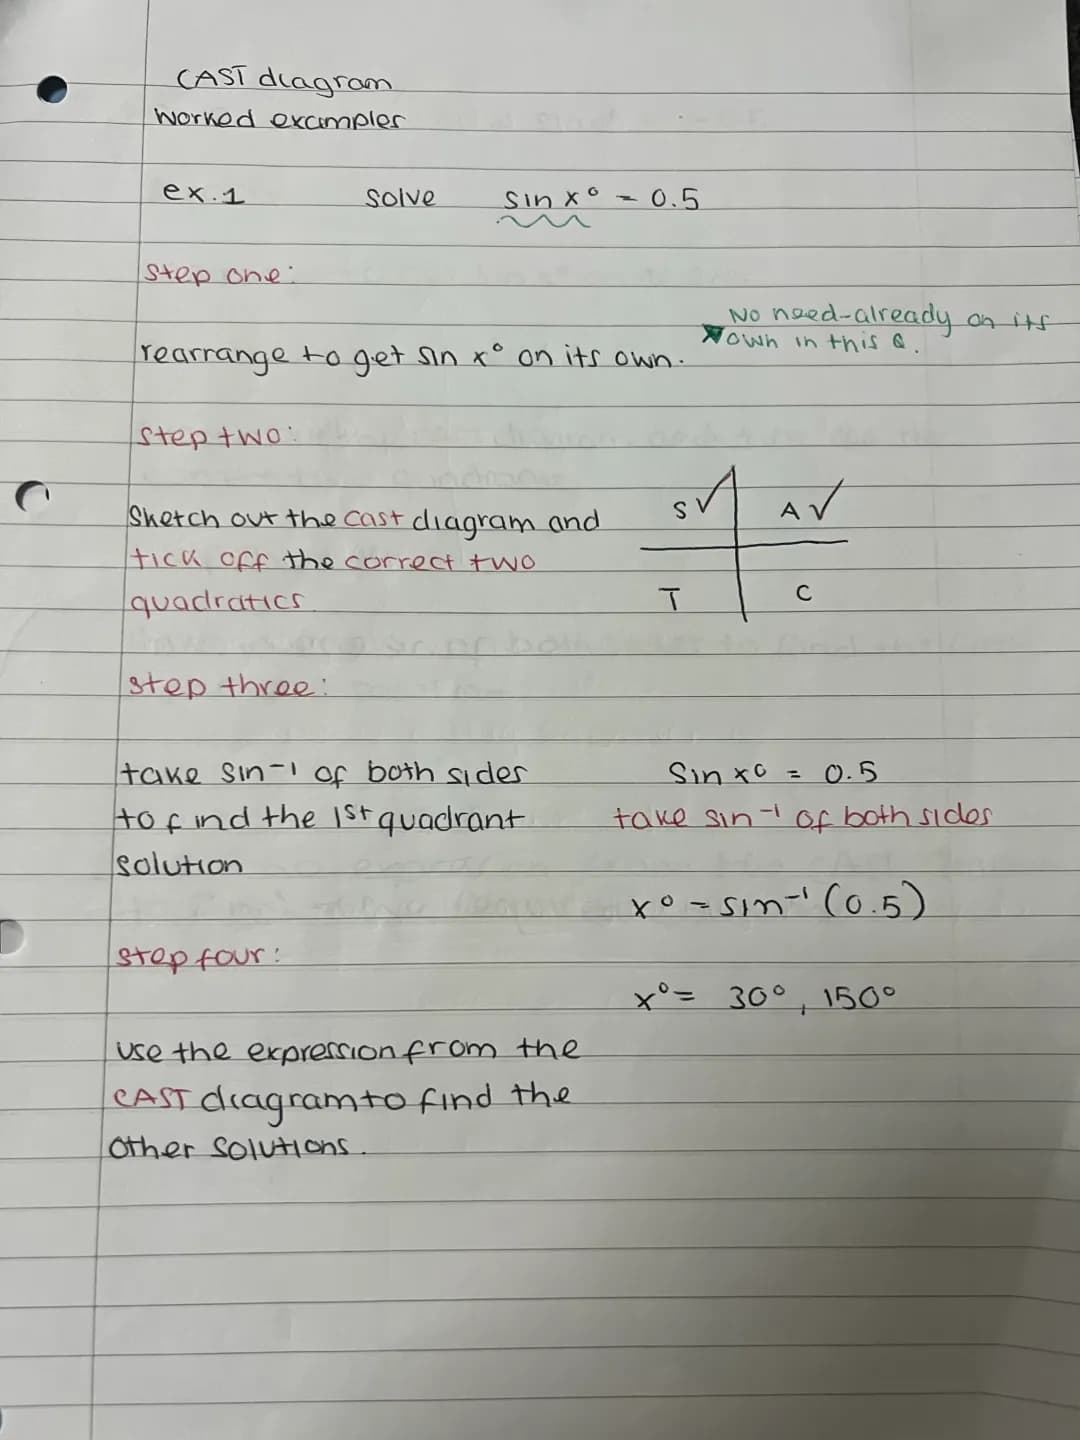 CAST diagram
Worked examples
ex.1 solve sin x° = 0.5
step one:
No need-already on its
own in this Q.
rearrange to get sin x° on its own.
step two:
S✓ A✓
Sketch out the cast diagram and
tick off the correct two
T C
quadratics
step three:
take sin⁻¹ of both sides
to find the 1st quadrant
solution
Sin x° = 0.5
take sin⁻¹ of both sides
x° = sin⁻¹ (0.5)
x° = 30°, 150°
step four:
use the expression from the
CAST diagram to find the
other solutions.